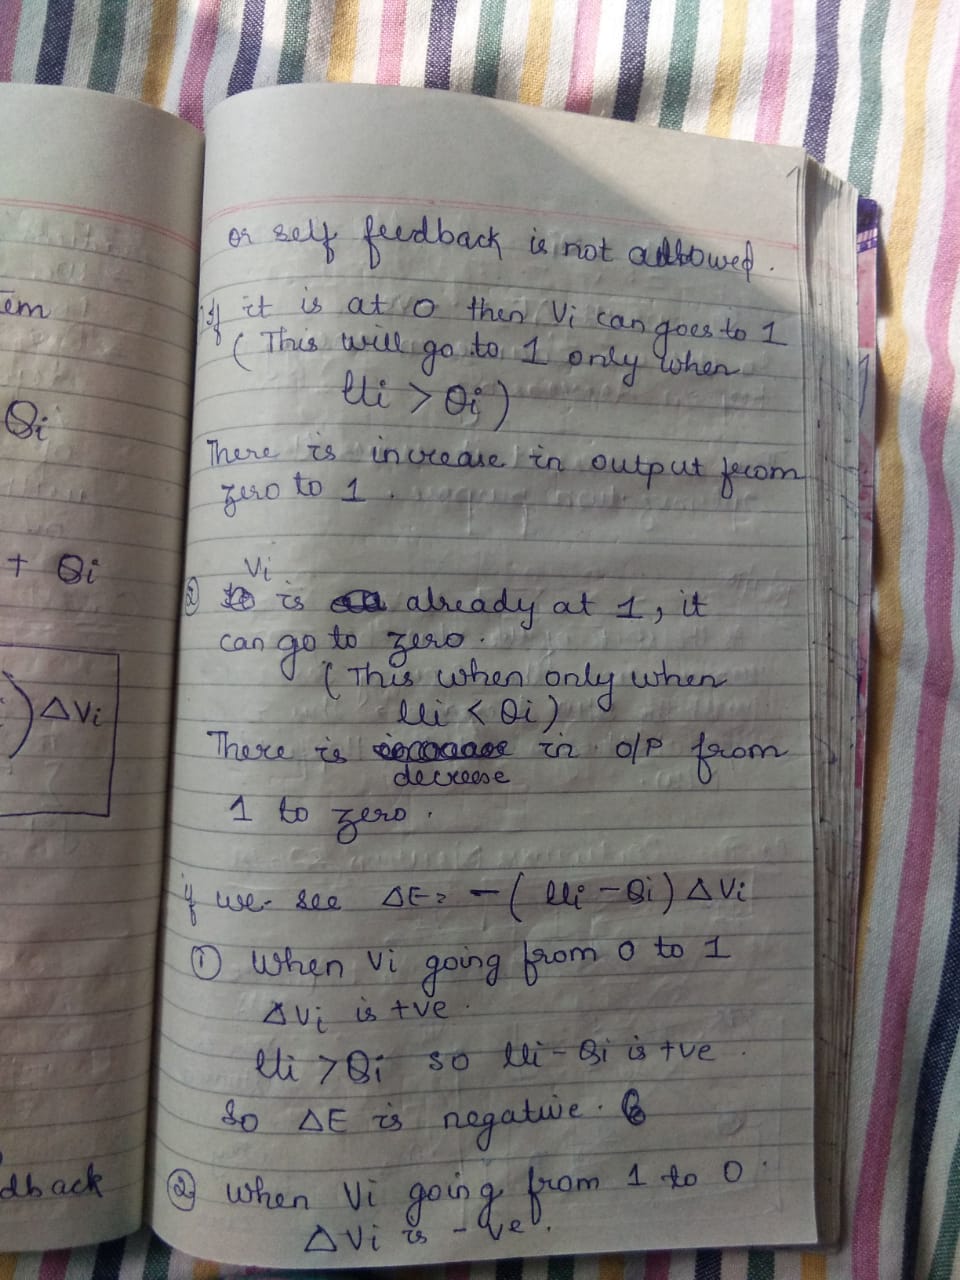 em
θi
+ θi
) ΔVi
dback
or self feedback is not allowed.
If it is at 0 then Vi can goes to 1
( This will go to 1 only when
Ui > θi )
There is increase in output from
zero to 1 .
Vi
② is already at 1, it
can go to zero .
( This when only when
Ui < θi )
There is in O/P from
decrease
1 to zero .
if we see ΔE = - ( Ui - θi ) ΔVi
① When Vi going from 0 to 1
ΔVi is +ve .
Ui > θi so Ui - θi is +ve .
So ΔE is negative .
② when Vi going from 1 to 0
ΔVi is -ve .